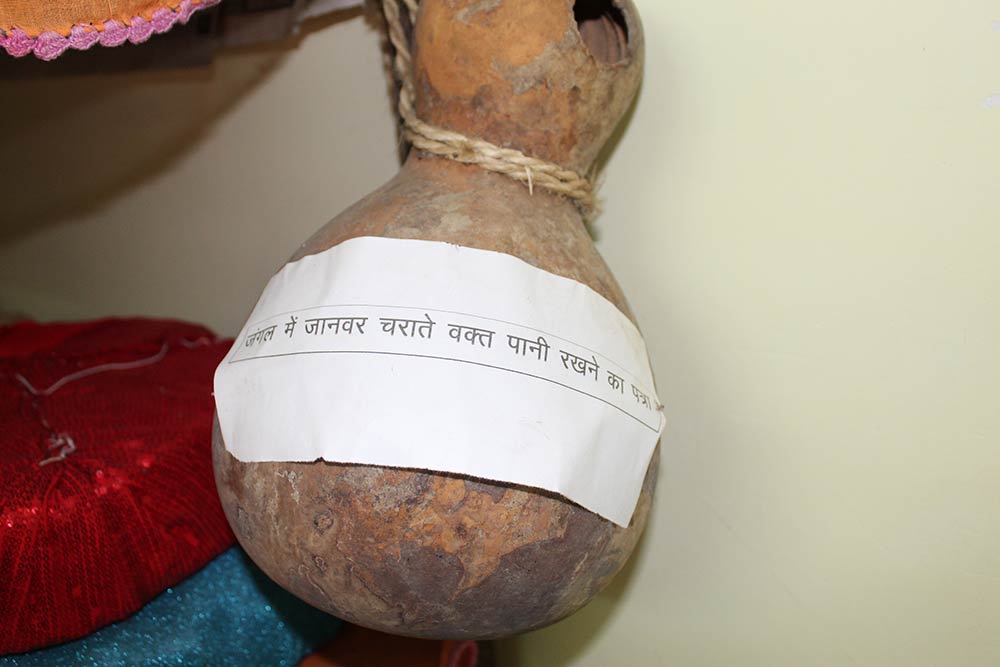 जंगल में जानवर चराते वक्त पानी रखने का पत्रा